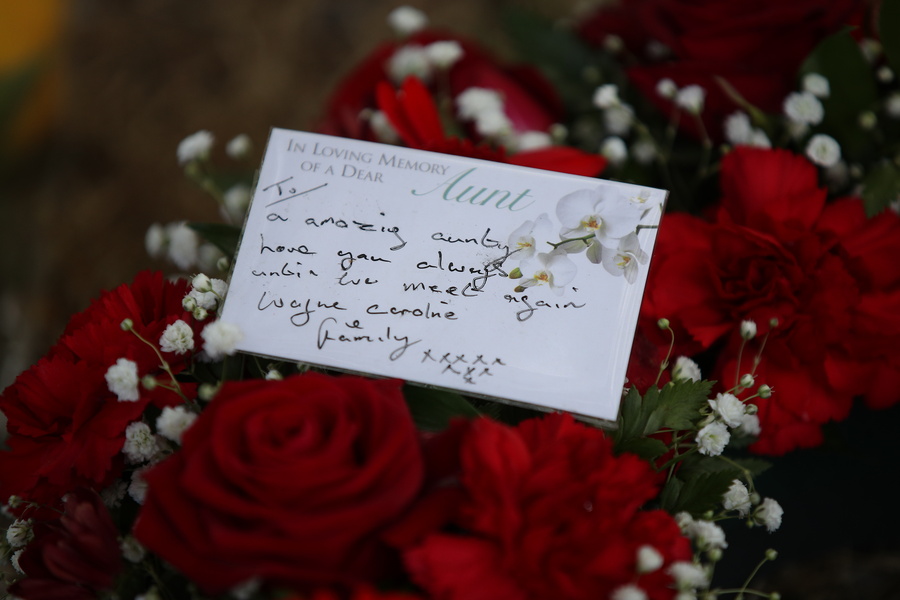 IN LOVING MEMORY
OF A DEAR Aunt
To/
a amazig aunty
love you always
untin we meet again
Wayne Caroline
& Family xxxxx
xxx